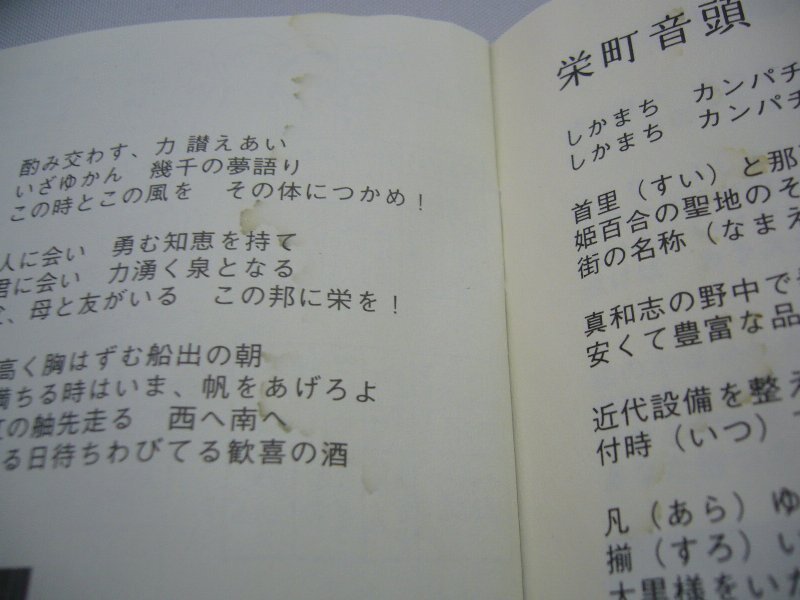 酌み交わす、力 讃えあい
いざゆかん 幾千の夢語り
この時とこの風を その体につかめ！
人に会い 勇む知恵を持て
君に会い 力湧く泉となる
、母と友がいる この邦に栄を！
高く胸はずむ船出の朝
満ちる時はいま、帆をあげろよ
の舳先走る 西へ南へ
る日待ちわびてる歓喜の酒
栄町音頭
しかまち カンパチ
しかまち カンパチ
首里（すい）と那
姫百合の聖地のそ
街の名称（なまえ
真和志の野中で
安くて豊富な品
近代設備を整え
付時（いつ）
凡（あら）ゆ
揃（すろ）い
大黒様をいた